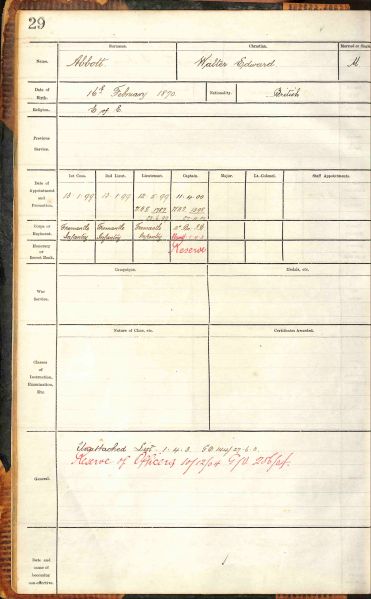 29
Surname. Christian. Married or Single
Name. Abbott Walter Edward M
Date of Birth. 16th February 1870 Nationality. British
Religion. C of E.
Previous Service.
1st Com. 2nd Lieut. Lieutenant. Captain. Major. Lt.-Colonel. Staff Appointments.
Date of Appointment and Promotion. 13·1·99 13·1·99 12·5·99 11·4·00
Corps or Regiment. Fremantle Infantry Fremantle Infantry Fremantle Infantry
Honorary or Brevet Rank. Reserve
Campaigns. Medals, etc.
War Service.
Nature of Class, etc. Certificates Awarded.
Classes of Instruction, Examination, Etc.
Unattached List 1·4·3. GO 144/27·6·3.
Reserve of Officers 10/12/04 G/O 256/04.
General.
Date and cause of becoming non-effective.